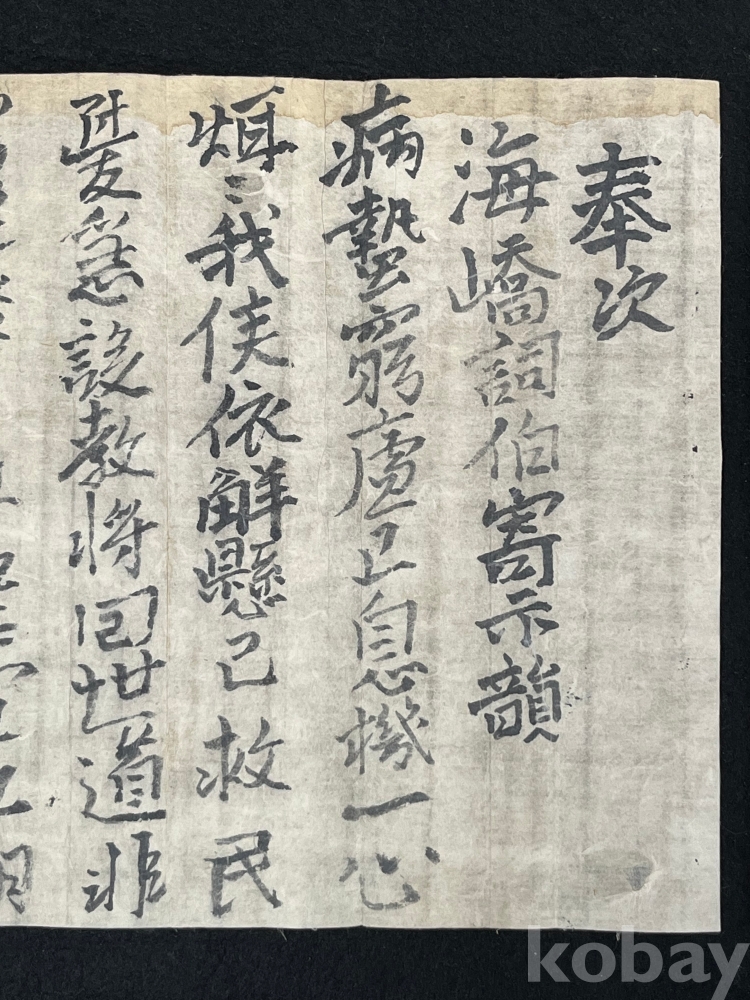 奉次
海嶠詞伯寄示韻
病蟄窮廬正息機一心
烱〻我侯依解懸已救民
隍急設教將回世道非
kobay